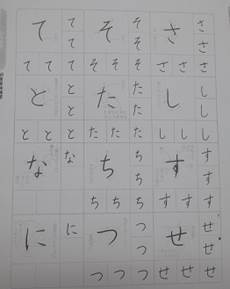 て て そ そ さ さ
て そ さ
て て て そ そ そ さ さ さ
と と た た し し
と た し
と と と た た た し し し
な な ち ち す す
ち す
ち ち ち す す す
に に つ つ せ せ
つ せ
つ つ つ せ せ せ